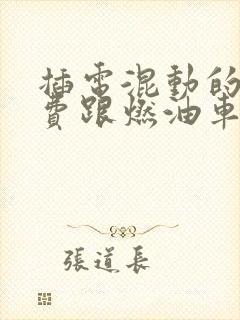 插電混動的
費跟燃油車
張道長